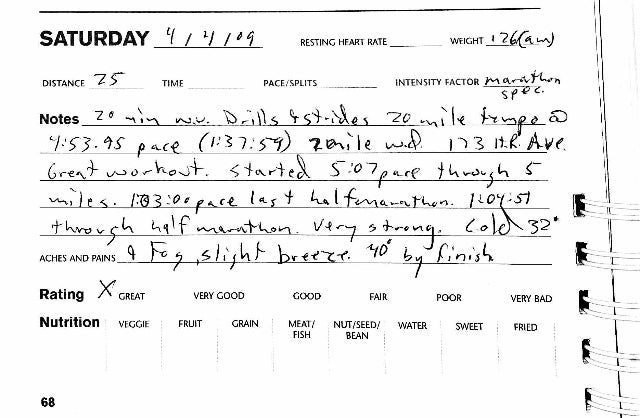 SATURDAY 4/4/09 RESTING HEART RATE WEIGHT 126(am)
DISTANCE 25 TIME PACE/SPLITS INTENSITY FACTOR marathon spec.
Notes 20 min w.u. Drills & strides 20 mile tempo @
4:53.95 pace (1:37:59) 2mile w.d. 173 H.R. Ave.
Great workout. Started 5:07 pace through 5
miles. 1:03:00 pace last half marathon. 1:04:51
through half marathon. Very strong. Cold 32°
ACHES AND PAINS & Fog, slight breeze. 40° by finish
Rating X GREAT VERY GOOD GOOD FAIR POOR VERY BAD
Nutrition VEGGIE FRUIT GRAIN MEAT/ FISH NUT/SEED/ BEAN WATER SWEET FRIED
68